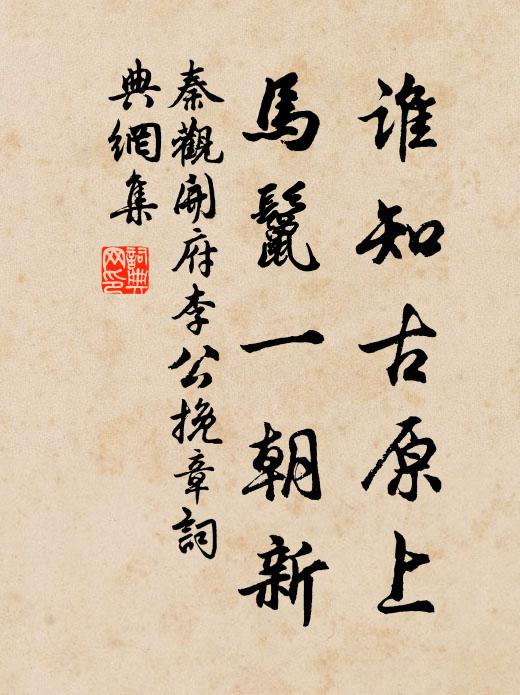 谁知古原上
馬鬣一朝新
秦觀開府李公挽章詞
典網集
詞典
网印